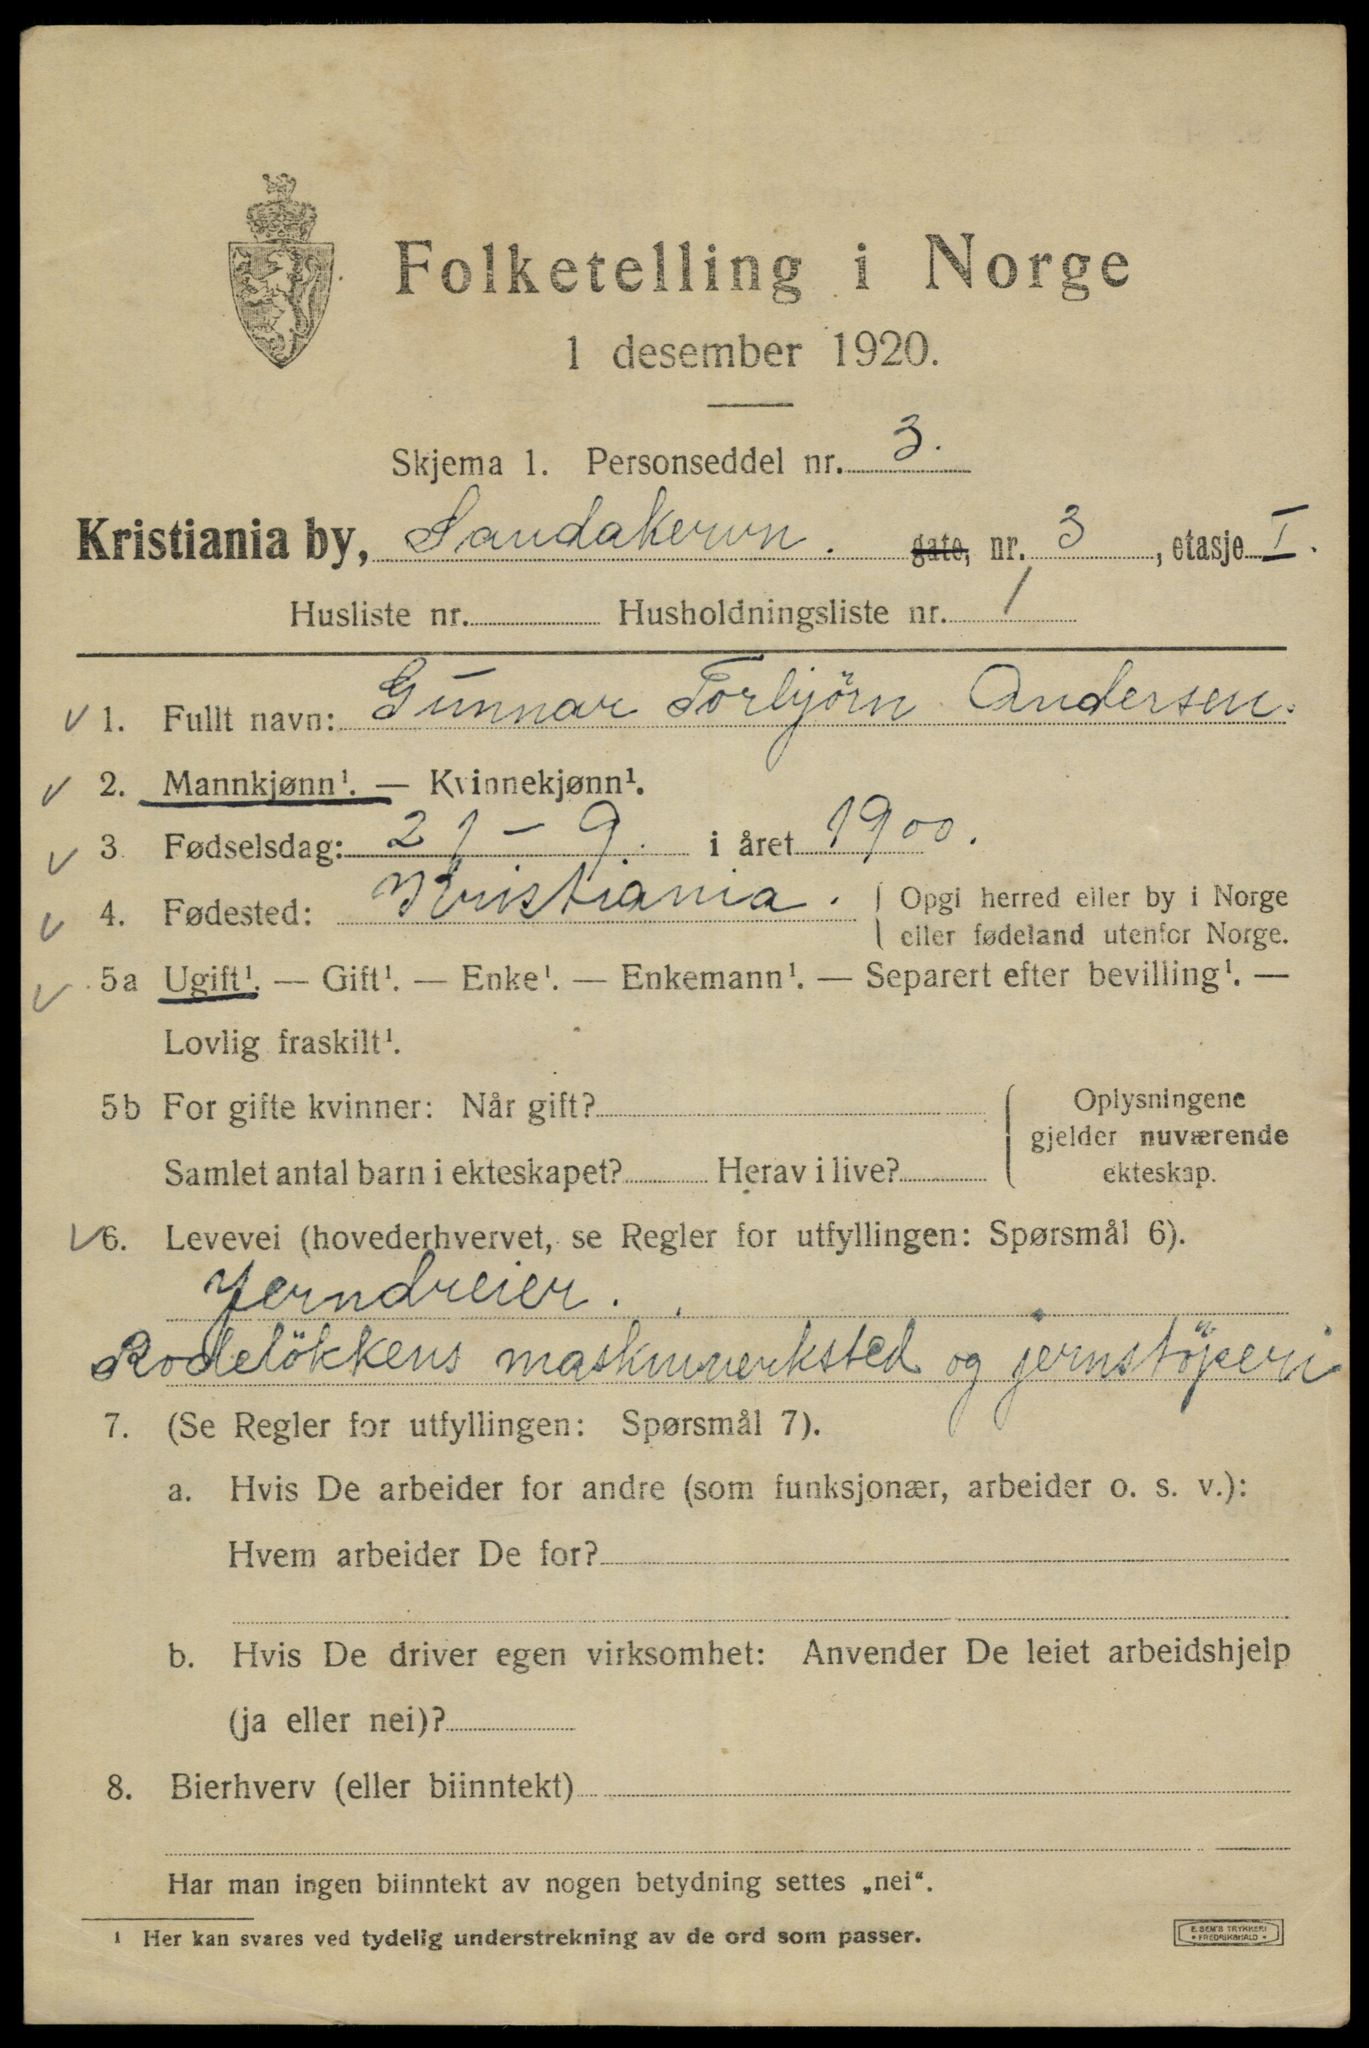 Folketelling i Norge
1 desember 1920.
Skjema 1. Personseddel nr. 3.
Kristiania by, Sandakervn. gate, nr. 3, etasje I.
Husliste nr. Husholdningsliste nr. 1
1. Fullt navn: Gunnar Torbjörn Andersen.
2. Mannkjønn¹. — Kvinnekjønn¹.
3 Fødselsdag: 21 – 9. i året 1900.
4. Fødested: Kristiania. Opgi herred eller by i Norge
eller fødeland utenfor Norge.
5a Ugift¹. — Gift¹. — Enke¹. — Enkemann¹. — Separert efter bevilling¹. —
Lovlig fraskilt¹.
5b For gifte kvinner: Når gift?
Samlet antal barn i ekteskapet? Herav i live?
Oplysningene
gjelder nuværende
ekteskap.
6. Levevei (hovederhvervet, se Regler for utfyllingen: Spørsmål 6).
Jerndreier.
Rodelökkens maskinverksted og jernstöperi
7. (Se Regler for utfyllingen: Spørsmål 7).
a. Hvis De arbeider for andre (som funksjonær, arbeider o. s. v.):
Hvem arbeider De for?
b. Hvis De driver egen virksomhet: Anvender De leiet arbeidshjelp
(ja eller nei)?
8. Bierhverv (eller biinntekt)
Har man ingen biinntekt av nogen betydning settes „nei“.
¹ Her kan svares ved tydelig understrekning av de ord som passer.
E. SEM'S TRYKKERI
• FREDRIKSHALD •